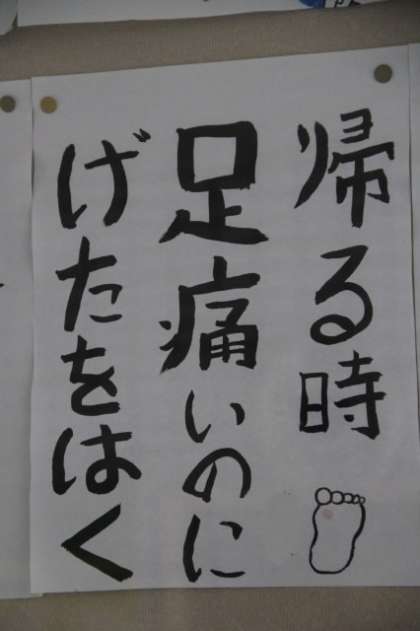 帰る時
足痛いのに
げたをはく